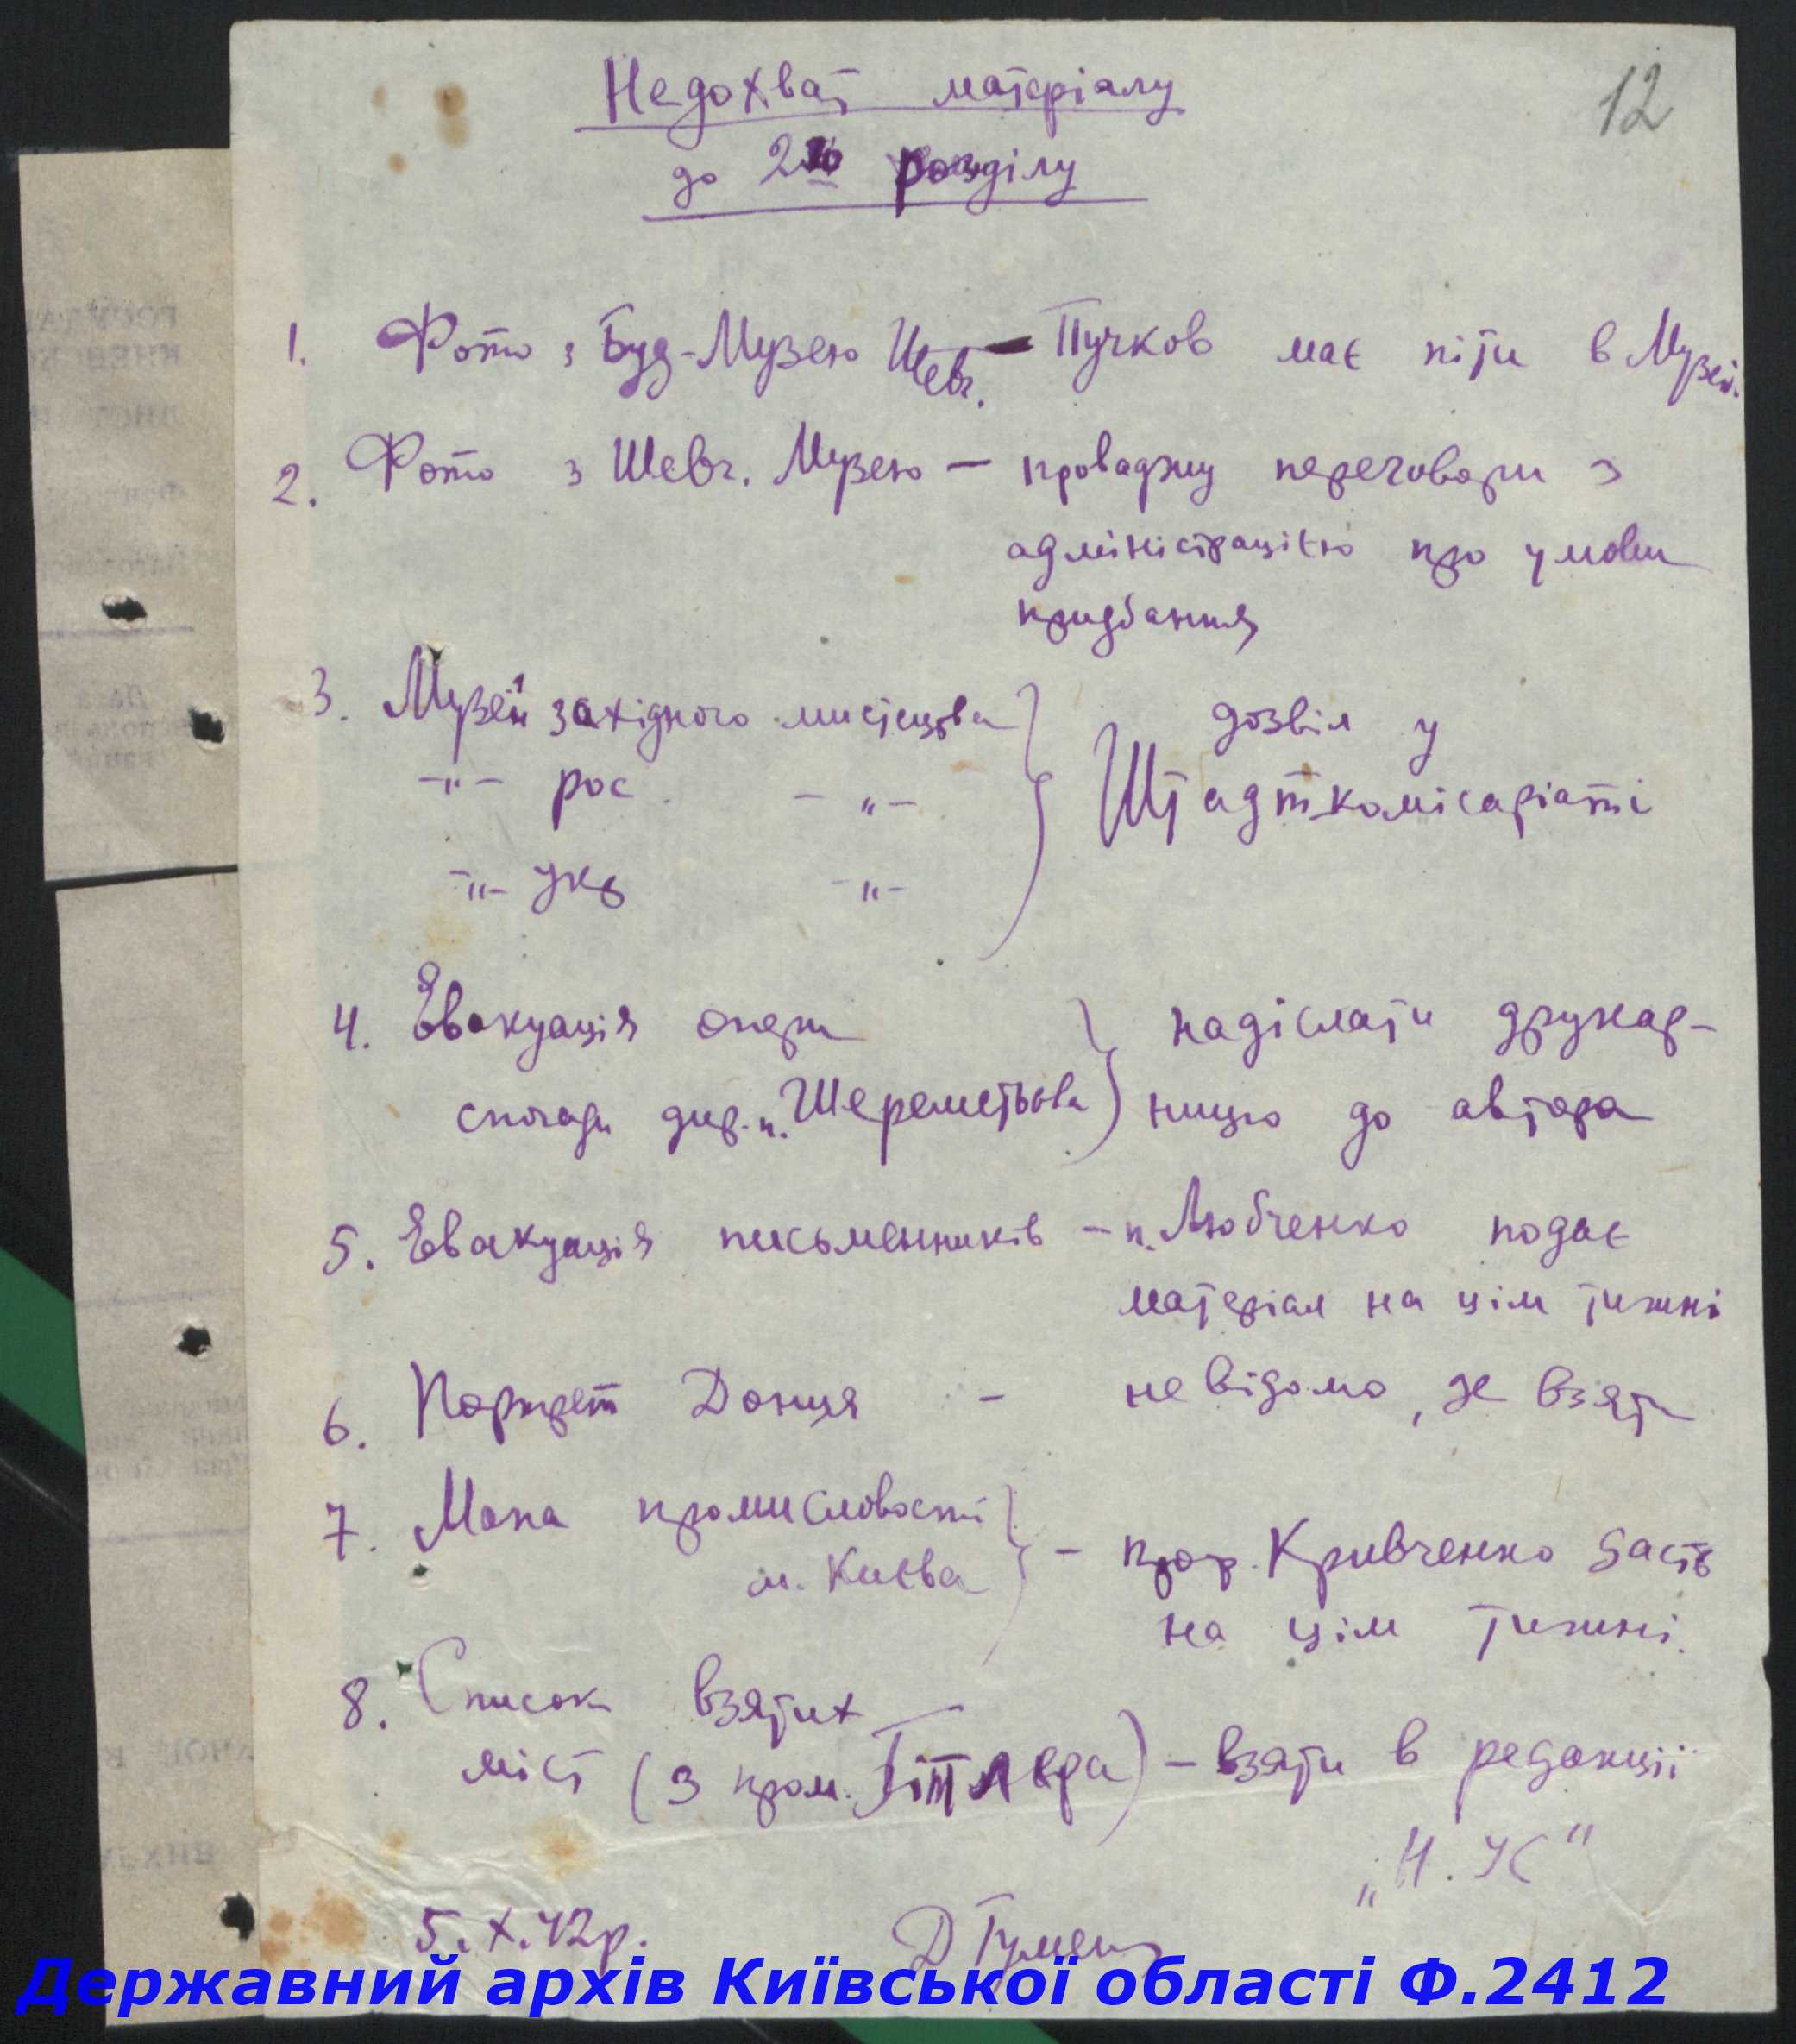 12
Недохват матеріалу
до 2го розділу
1. Фото з Буд-Музею Шевч. — Пучков має піти в Музей.
2. Фото з Шевч. Музею — проваджу переговори з
адміністрацією про умови
придбання
3. Музей західного мистецтва } дозвіл у
–"– рос. –"– Штадткомісаріаті
–"– укр –"–
4. Евакуація опери } надіслати друкар-
спогади дир. п. Шереметьєва ницю до автора
5. Евакуація письменників – п. Любченко подає
матеріал на цім тижні
6. Портрет Донця – невідомо, де взяти
7. Мапа промисловості
м. Києва } – проф. Кривченко дасть
на цім тижні.
8. Список взятих
міст (з пром. Гітлера) – взяти в редакції
„Н. У."
5.X.42р. Д Гумен
Державний архів Київської області Ф.2412